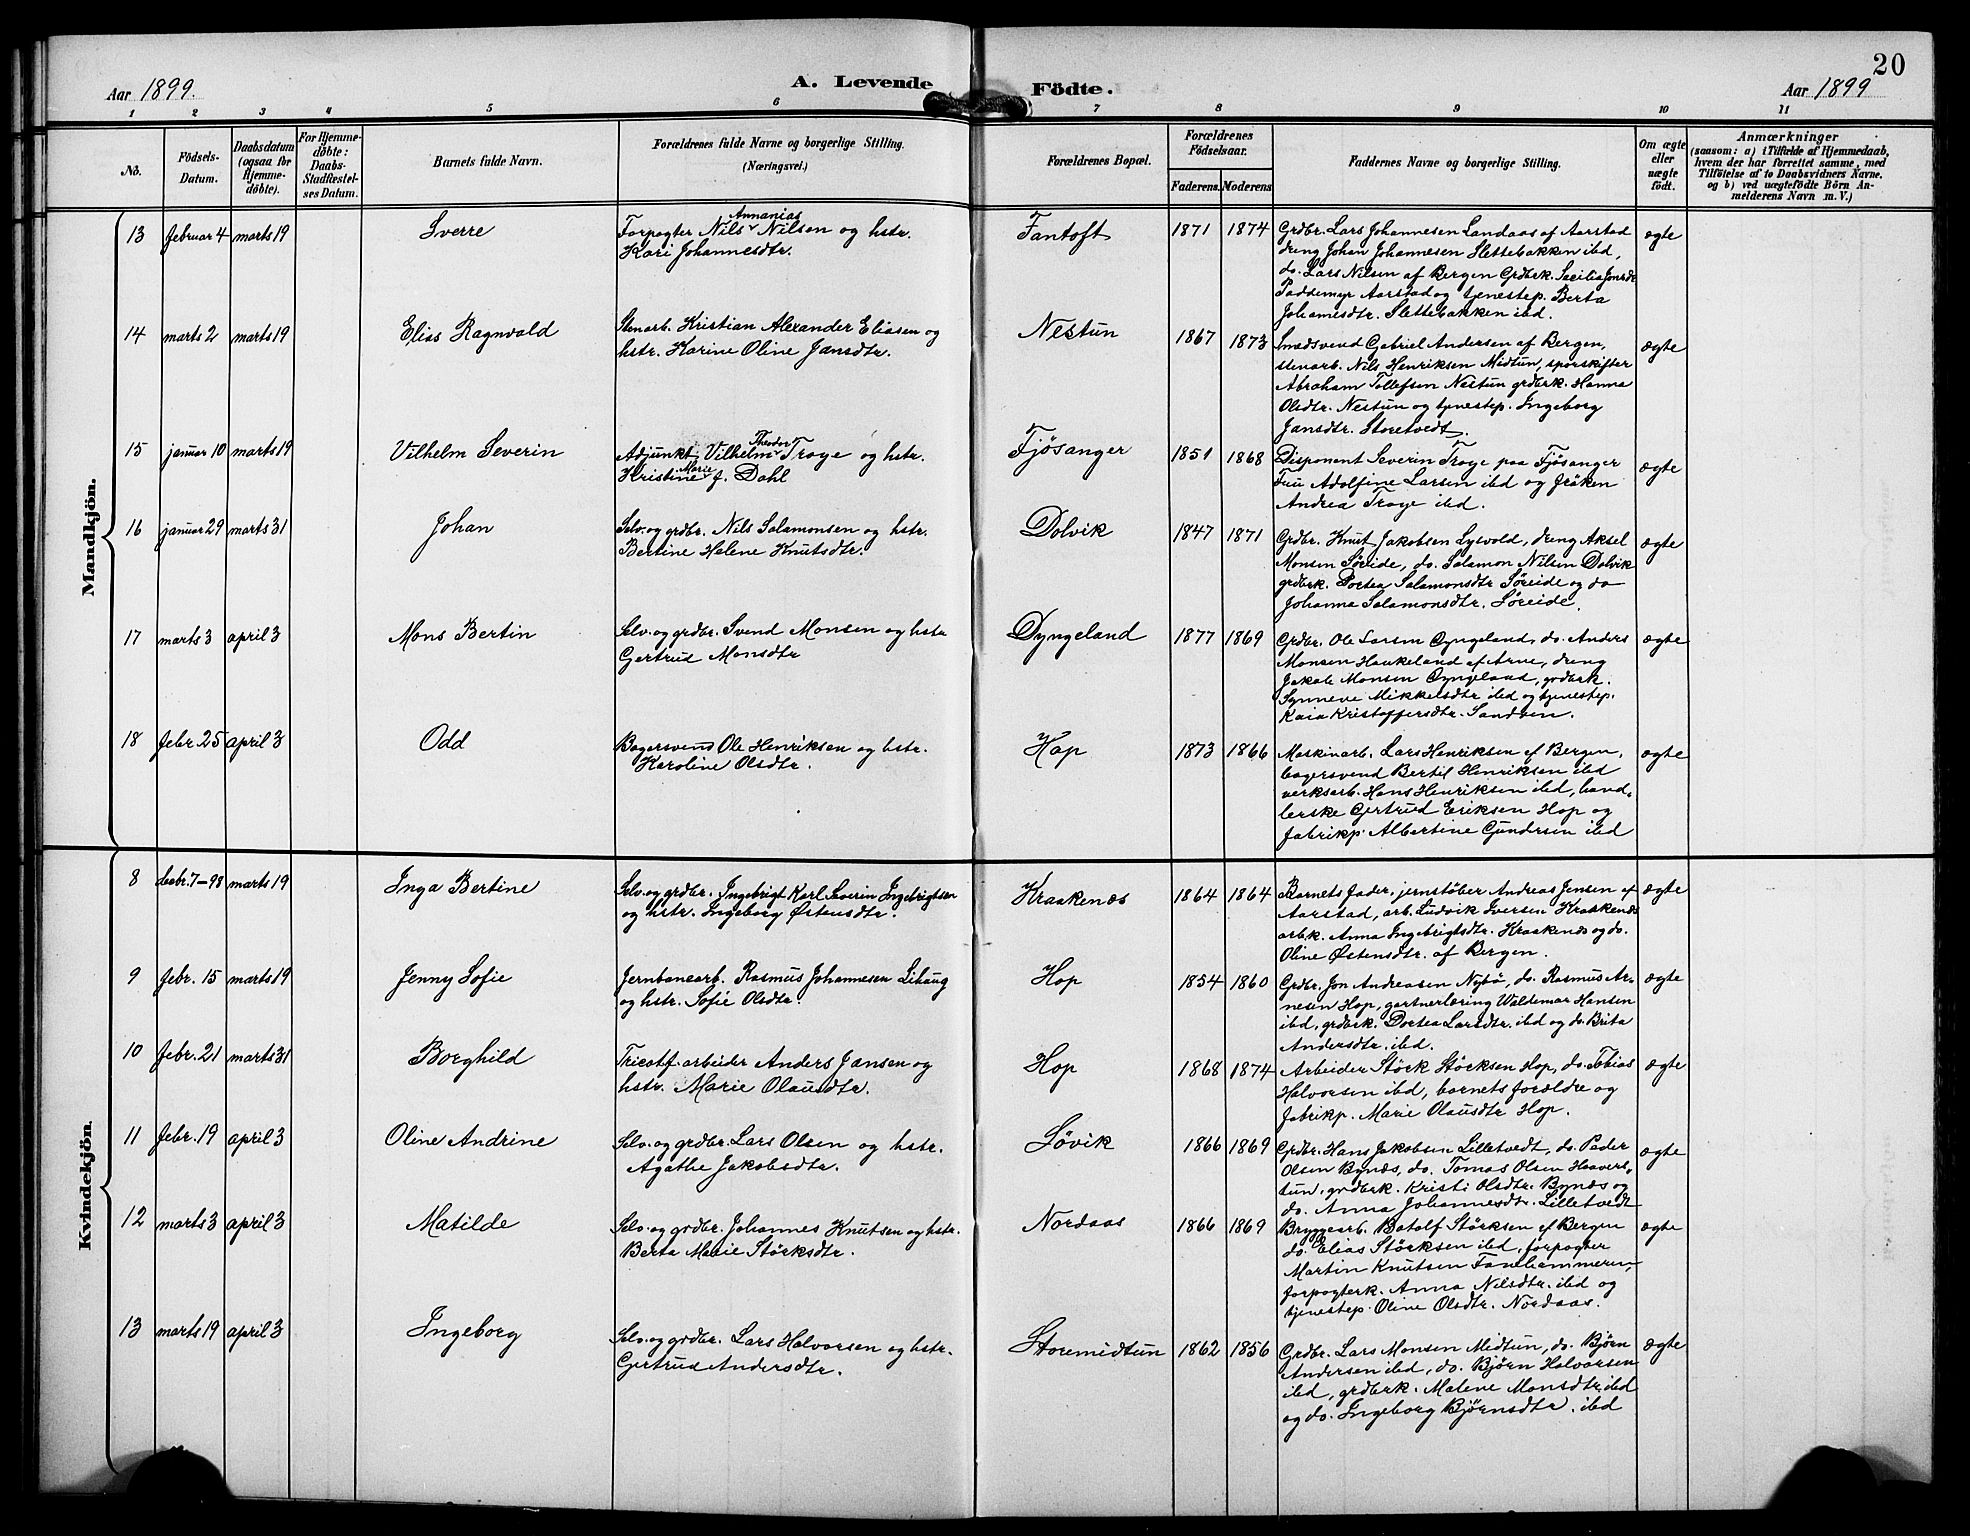 20
Aar 1899.
A. Levende Födte.
Aar 1899
1 2 3 4 5 6 7 8 9 10 11
No.
Födsels-
Datum.
Daabsdatum
(ogsaa for
Hjemme-
döbte).
For Hjemme-
döbte:
Daabs-
Stadfæstel-
ses Datum.
Barnets fulde Navn.
Forældrenes fulde Navne og borgerlige Stilling.
(Næringsvei.)
Forældrenes Bopæl.
Forældrenes
Födselsaar.
Faderens. Moderens
Faddernes Navne og borgerlige Stilling.
Om ægte
eller
uægte
født.
Anmærkninger
(saasom: a) i Tilfælde af Hjemmedaab,
hvem der har forrettet samme, med
Tilföielse af to Daabsvidners Navne,
og b) ved uægtefödte Börn An-
melderens Navn m.V.)
Mandkjön.
13 februar 4 marts 19 Sverre
Annanias
Forpagter Nils Nilsen og hstr.
Kari Johannesdtr.
Fantoft 1871 1874
Grdbr. Lars Johannesen Landaas af Aarstad
dreng Johan Johannesen Slettebakken ibd,
do. Lars Nilsen af Bergen Grdbrk. Sæcilia Jonsdtr
Paddemyr Aarstad og tjenestep. Berta
Johannesdtr. Slettebakken ibd.
ægte
14 marts 2 marts 19 Elias Ragnvald
Stenarb. Kristian Alexander Eliasen og
hstr. Karine Oline Jansdtr.
Nestun 1867 1873
Smedsvend Gabriel Andersen af Bergen,
stenarb. Nils Henriksen Midtun, sporskifter
Abraham Tollefsen Nestun grdbrk. Hanna
Olsdtr. Nestun og tjenestep. Ingeborg
Jansdtr. Storetvedt.
ægte
15 januar 10 marts 19 Vilhelm Severin
Theodor
Adjunkt Vilhelm Troye og hstr.
Marie
Kristine f. Dahl
Fjøsanger 1851 1868
Disponent Severin Troye paa Fjøsanger
Fru Adolfine Larsen ibd og frøken
Andrea Troye ibd.
ægte
16 januar 29 marts 31 Johan
Selv. og grdbr. Nils Salamonsen og hstr.
Bertine Helene Knutsdtr.
Dolvik 1847 1871
Grdbr. Knut Jakobsen Lysvold, dreng Aksel
Monsen Søreide, do. Salamon Nilsen Dolvik
grdbrk. Dortea Salamonsdtr Søreide og do
Johanna Salamonsdtr. Søreide.
ægte
17 marts 3 april 3 Mons Bertin
Selv. og grdbr. Svend Monsen og hstr
Gertrud Monsdtr
Dyngeland 1877 1869
Grdbr. Ole Larsen Dyngeland, do. Anders
Monsen Haukeland af Arne, dreng
Jakob Monsen Dyngeland, grdbrk.
Synneve Mikkelsdtr ibd og tjenestep.
Kaia Kristoffersdtr. Sandven.
ægte
18 febr. 25 april 3 Odd
Bagersvend Ole Henriksen og hstr.
Karoline Olsdtr.
Hop 1873 1866
Maskinarb. Lars Henriksen af Bergen,
bagersvend Bertil Henriksen ibd
verksarb. Hans Henriksen ibd, hand-
lerske Gertrud Eriksen Hop og
fabrikp. Albertine Gundersen ibd
ægte
Kvindekjön.
8 decbr. 7-98 marts 19 Inga Bertine
Selv. og grdbr. Ingebrigt Karl Severin Ingebrigtsen
og hstr. Ingeborg Østensdtr.
Kraakenes 1864 1864
Barnets fader, jernstøber Andreas Jensen af
Aarstad, arb. Ludvik Iversen Kraakenes
arbk. Anna Ingebrigtsdtr. Kraakenes og do.
Oline Østensdtr. af Bergen.
ægte
9 febr. 15 marts 19 Jenny Sofie
Jernbanearb. Rasmus Johannesen Lihaug
og hstr. Sofie Olsdtr.
Hop 1854 1860
Grdbr. Jon Andreasen Nybø, do. Rasmus Ar-
nesen Hop, gartnerlæring Waldemar Hansen
ibd, grdbrk. Dortea Larsdtr. ibd og do. Brita
Andersdtr. ibd.
ægte
10 febr. 21 marts 31 Borghild
Tricotf. arbeider Anders Jansen og
hstr. Marie Olausdtr.
Hop 1868 1874
Arbeider Størk Størksen Hop, do. Tobias
Halvorsen ibd, barnets forældre og
fabrikp. Marie Olausdtr Hop.
ægte
11 febr. 19 april 3 Oline Andrine
Selv. og grdbr. Lars Olsen og hstr.
Agathe Jakobsdtr.
Søvik 1866 1869
Grdbr. Hans Jakobsen Lilletvedt, do. Peder
Olsen Bynes, do. Tomas Olsen Haavers-
tun, grdbrk. Kristi Olsdtr. Bynes og
do. Anna Johannesdtr. Lilletvedt
ægte
12 marts 3 april 3 Matilde
Selv. og grdbr. Johannes Knutsen og hstr.
Berta Marie Størksdtr.
Nordaas 1866 1869
Bryggearb. Batolf Størksen af Bergen
do. Elias Størksen ibd, forpagter
Martin Knutsen Fanehammeren,
forpagterk. Anna Nilsdtr. ibd og
tjenestep. Oline Olsdtr. Nordaas.
ægte
13 marts 19 april 3 Ingeborg
Selv. og grdbr. Lars Halvorsen og hstr.
Gertrud Andersdtr.
Storemidtun 1862 1856
Grdbr. Lars Monsen Midtun, do. Bjørn
Andersen ibd, do. Bjørn Halvorsen
ibd, grdbrk. Malene Monsdtr. ibd
og do. Ingeborg Bjørnsdtr. ibd
ægte